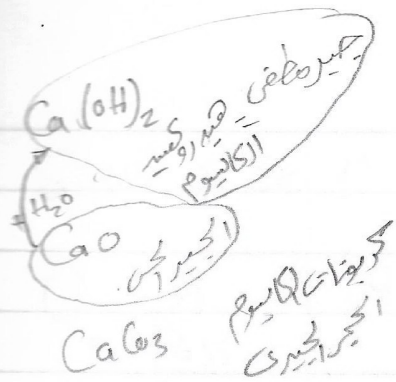 Ca(OH)2 جير مطفي - هيدروكسيد
الكالسيوم
+H2O
CaO الجير الحي
CaCo3 كربونات الكالسيوم
الحجر الجيري